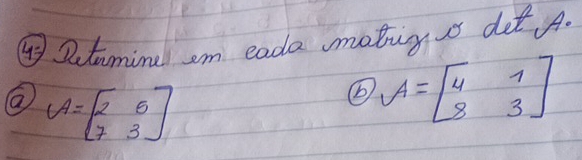 4=) Determine em cada matriz o det A.
a) A = [2 5 b) A = [4 1
7 3] 8 3]